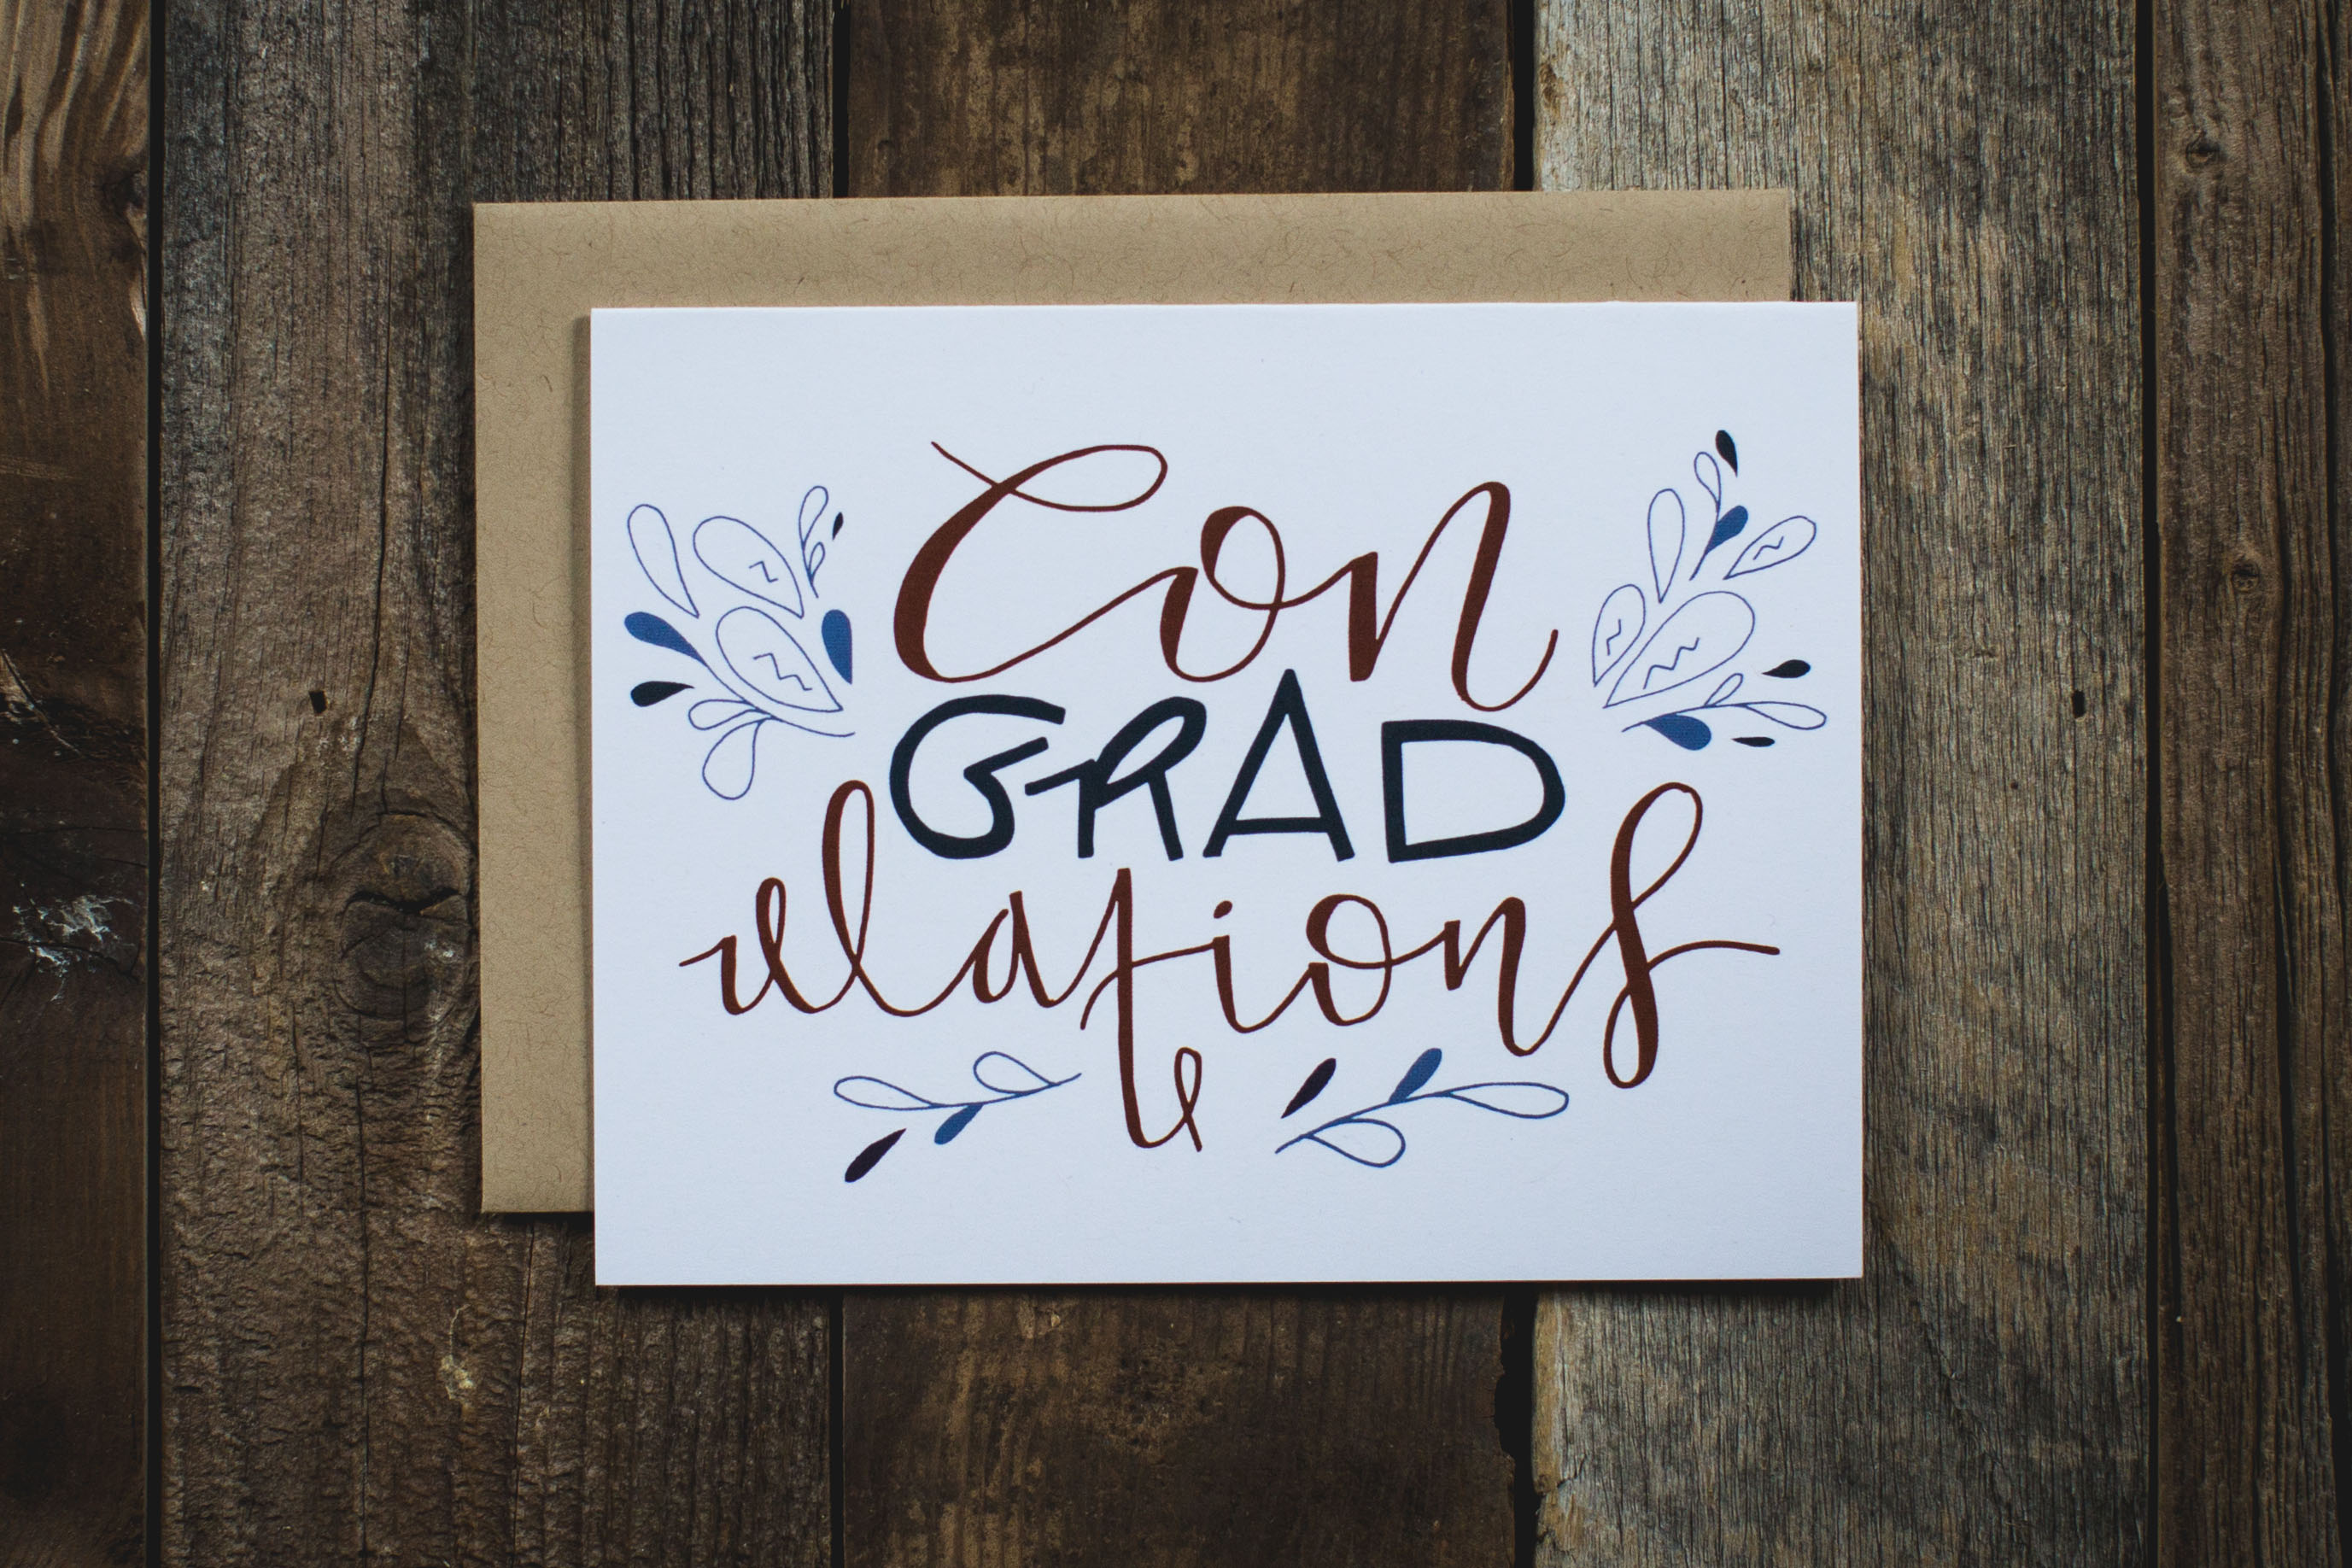 Con
GRAD
ulations